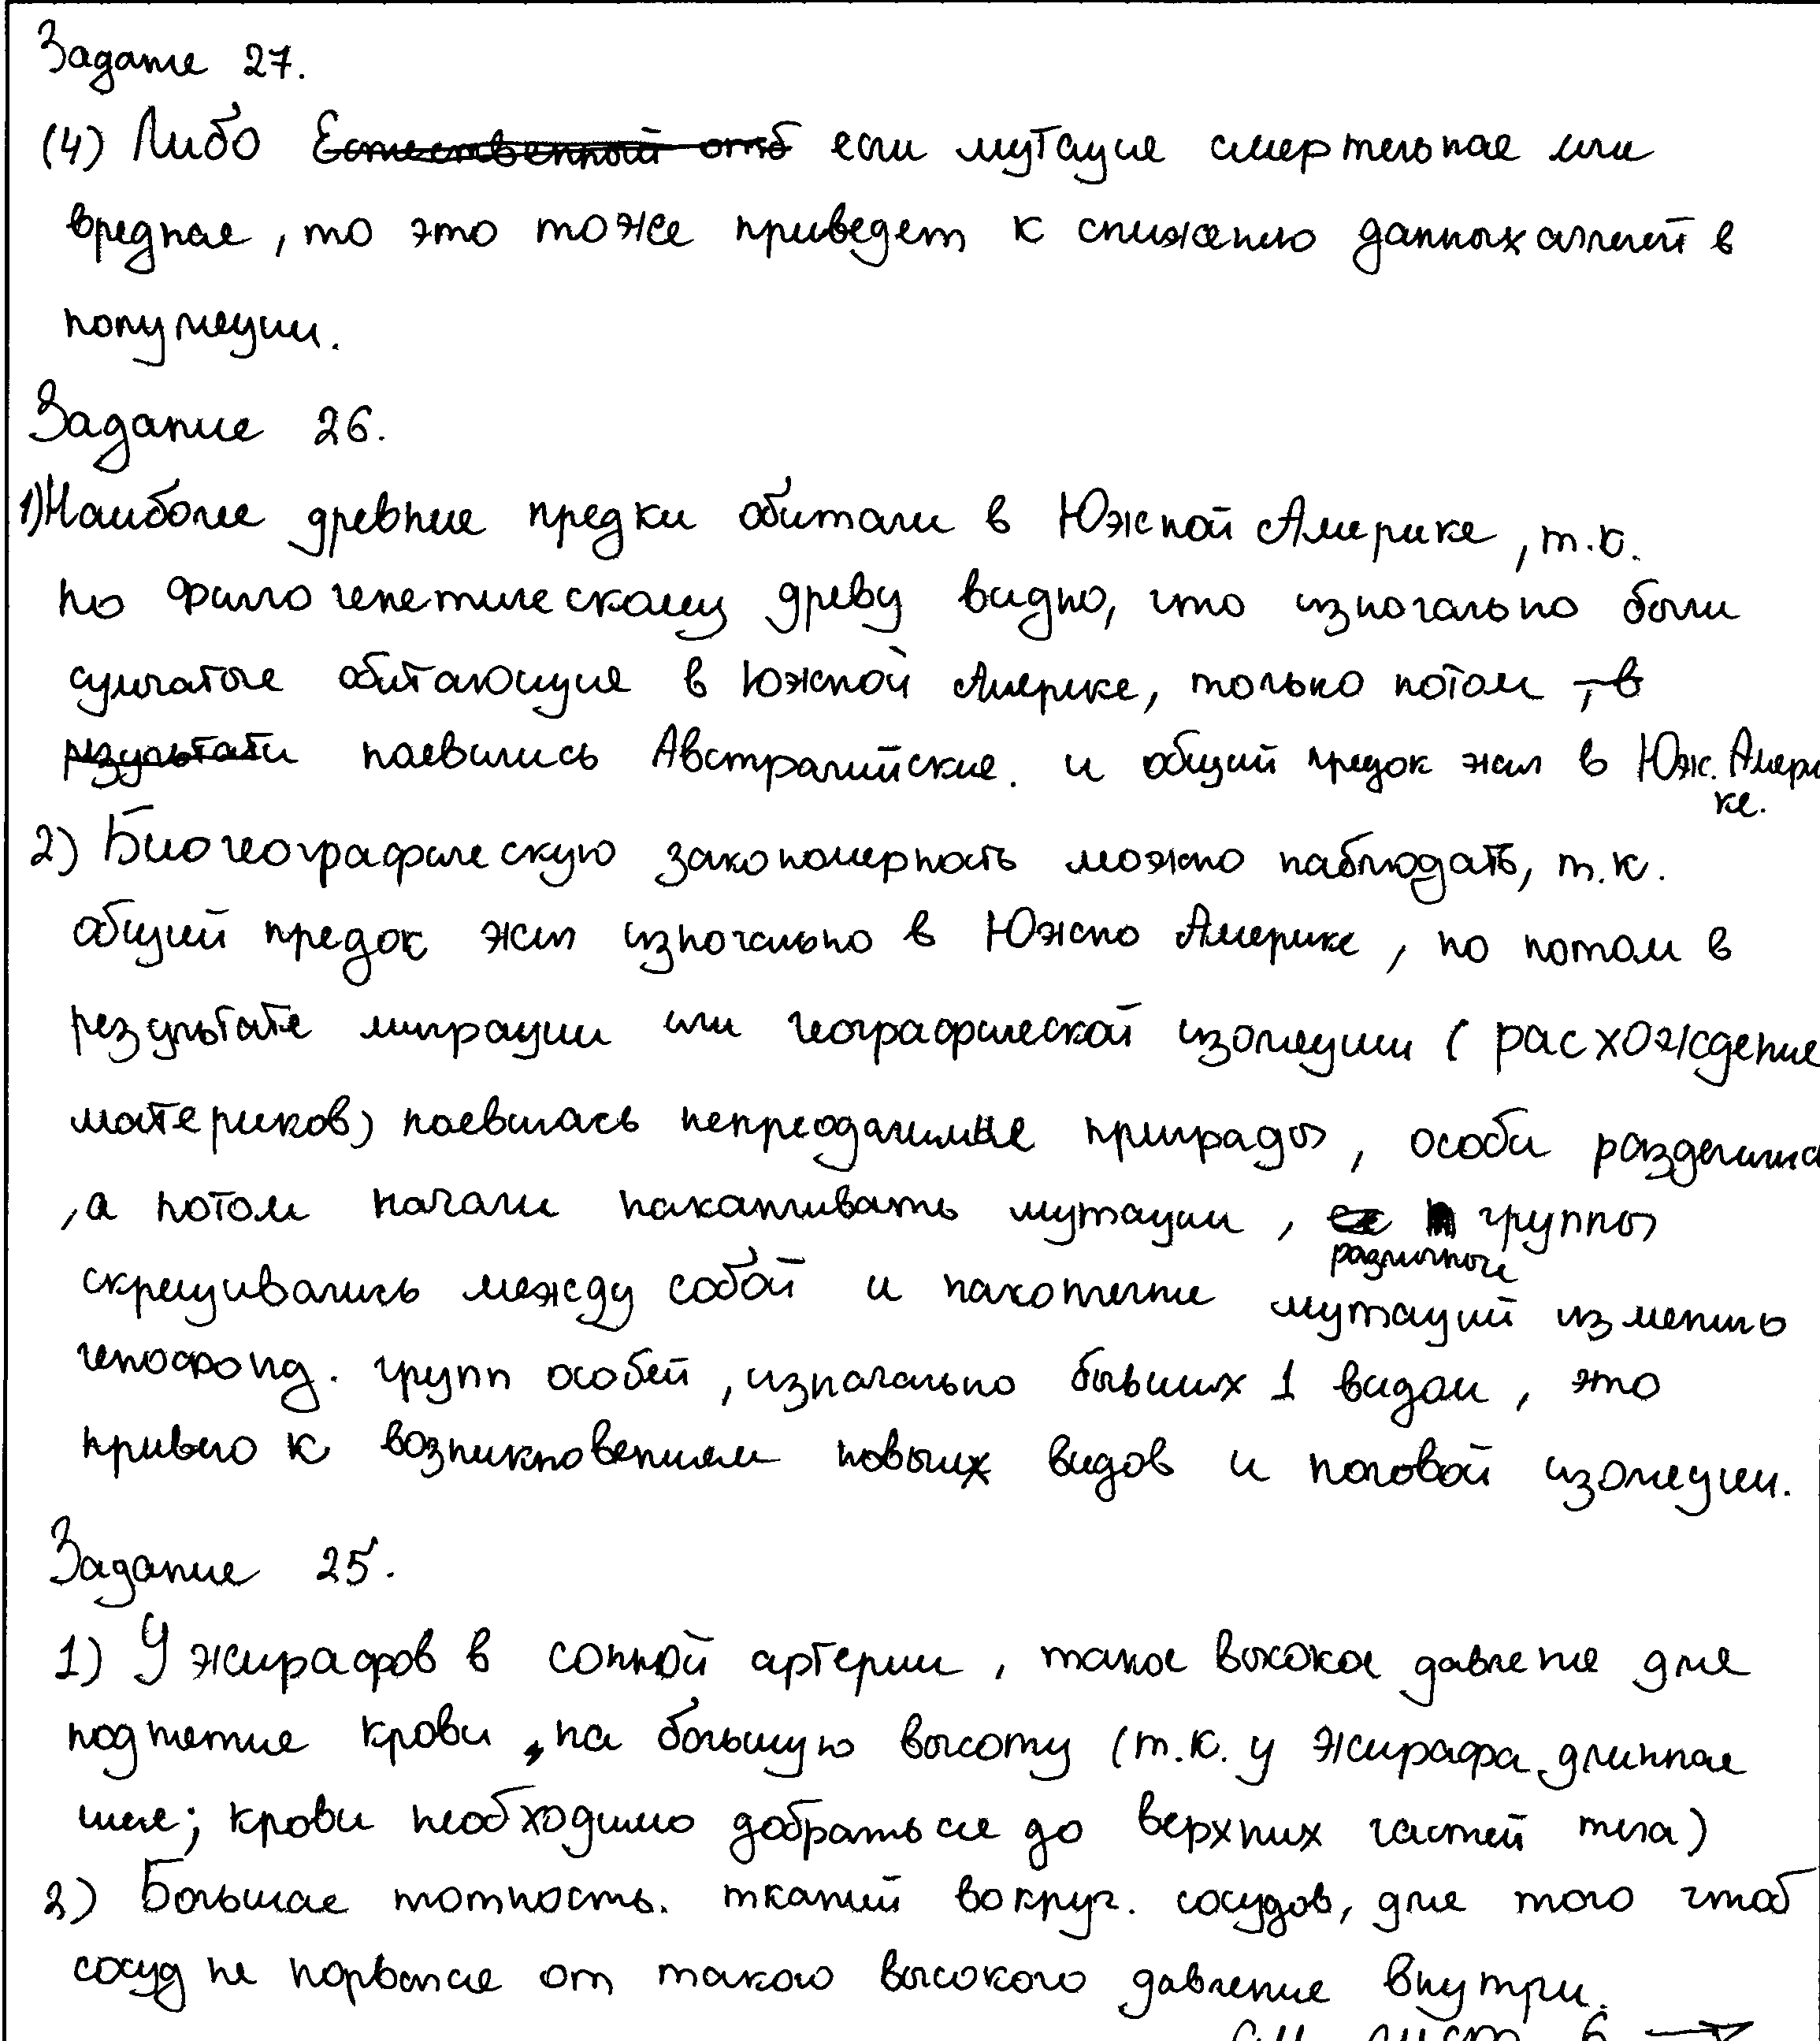 Задание 27.
(4) Либо Естественный отб если мутация смертельная или
вредная, то это тоже приведет к снижению данных аллелей в
популяции.
Задание 26.
1) Наиболее древние предки обитали в Южной Америке, т.к.
по филогенетическому древу видно, что изначально были
сумчатые обитающие в Южной Америке, только потом , в
результати появились Австралийские. и общий предок жил в Юж. Амери
ке.
2) Биогеографическую закономерность можно наблюдать, т.к.
общий предок жил изночально в Южно Америке, но потом в
результате миграции или географической изоляции (расхождение
материков) появилась непреодалимые приграды, особи разделились
, а потом начали накапливать мутации, группы
скрещивались между собой и накопление различные мутаций изменило
генофонд. групп особей, изначально бывших 1 видом, это
привело к возникновениям новых видов и половой изоляции.
Задание 25.
1) У жирафов в сонной артерии, такое высокое давление для
поднятия крови, на большую высоту (т.к. у жирафа длинная
шея; крови необходимо добраться до верхних частей тела)
2) Большая плотность. тканий вокруг. сосудов, для того чтоб
сосуд не порвался от такого высокого давления внутри.
см. лист 6 →